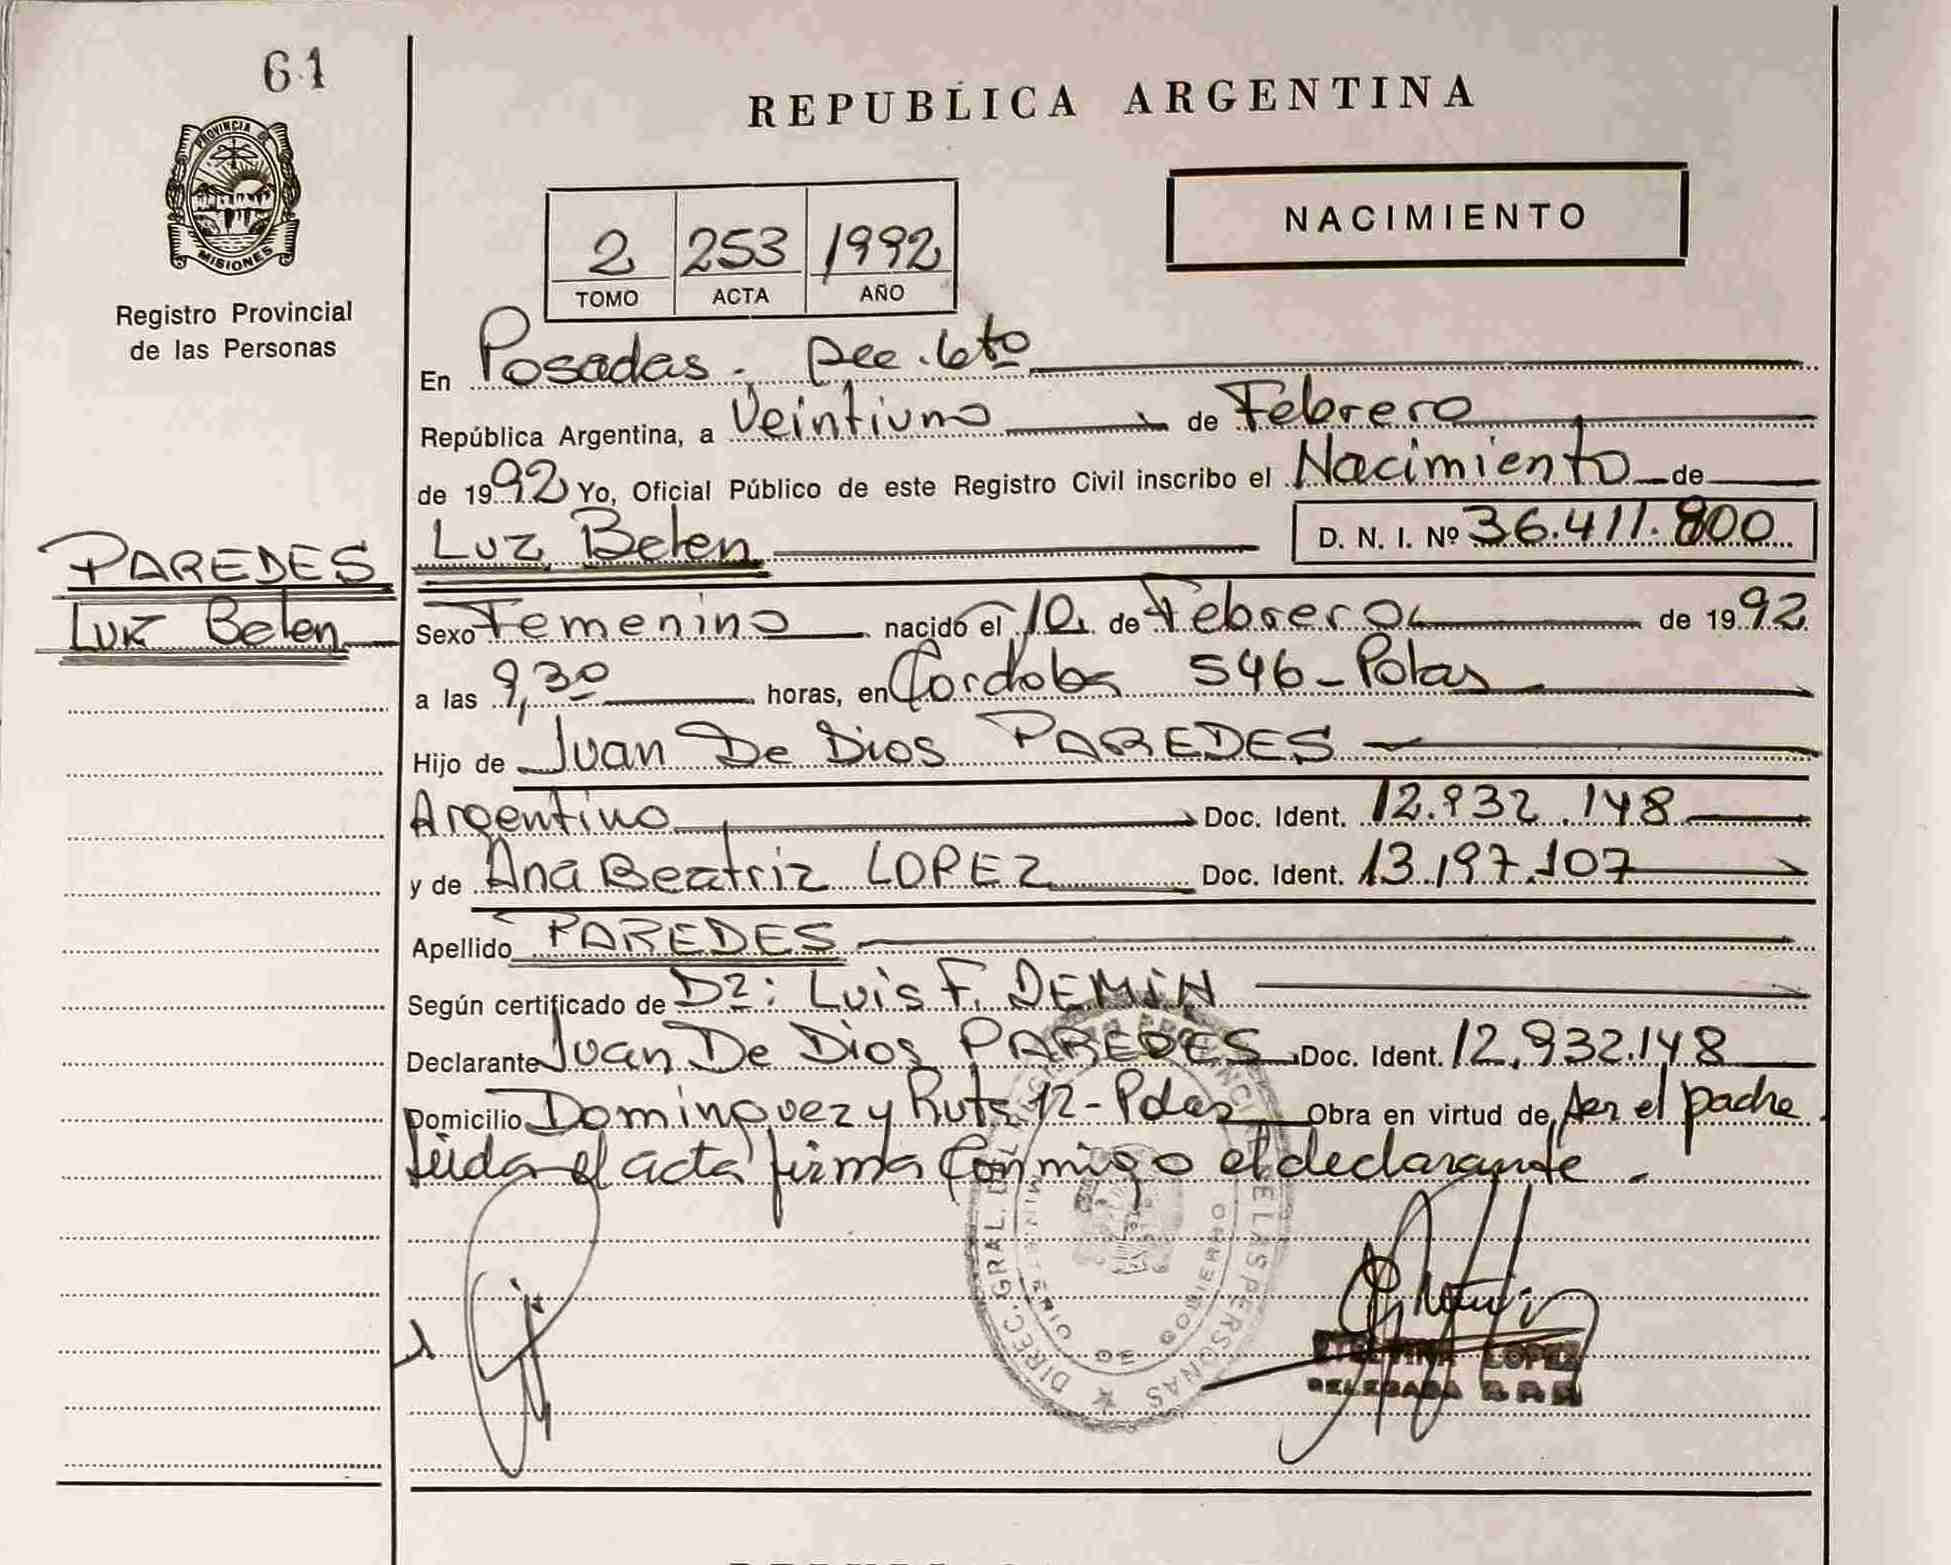 61
PROVINCIA DE
MISIONES
Registro Provincial
de las Personas
PAREDES
Luz Belen
REPUBLICA ARGENTINA
NACIMIENTO
2 253 1992
TOMO ACTA AÑO
En Posadas. Sec. 6to
República Argentina, a Veintiuno de Febrero
de 1992 Yo, Oficial Público de este Registro Civil inscribo el Nacimiento de
Luz Belen D. N. I. Nº 36.411.800
Sexo Femenino nacido el 10 de Febrero de 1992
a las 9,30 horas, en Cordoba 546-Pdas
Hijo de Juan De Dios PAREDES
Argentino Doc. Ident. 12.932.148
y de Ana Beatriz LOPEZ Doc. Ident. 13.197.107
Apellido PAREDES
Según certificado de Dr: Luis F. DEMIN
Declarante Juan De Dios PAREDES Doc. Ident. 12.932.148
Domicilio Dominguez y Ruta 12-Pdas Obra en virtud de ser el padre.
Leida el acta firma conmigo el declarante.
DIREC. GRAL. DEL REGISTRO PROVINCIAL DE LAS PERSONAS
MINISTERIO DE GOBIERNO
LOPEZ
DELEGADA